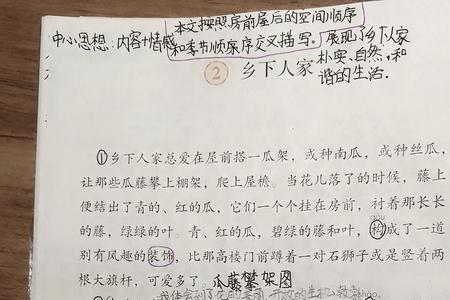 本文按照房前屋后的空间顺序
中心思想：内容+情感 和季节顺序交叉描写。展现了乡下人家
朴实、自然，和
谐的生活。
2 乡下人家
①乡下人家总爱在屋前搭一瓜架，或种南瓜，或种丝瓜，
让那些瓜藤攀上棚架，爬上屋檐。当花儿落了的时候，藤上
便结出了青的、红的瓜，它们一个个挂在房前，衬着那长长
的藤，绿绿的叶。青、红的瓜，碧绿的藤和叶，构成了一道
gòu
别有风趣的装饰，比那高楼门前蹲着一对石狮子或是竖着两
根大旗杆，可爱多了。瓜藤攀架图